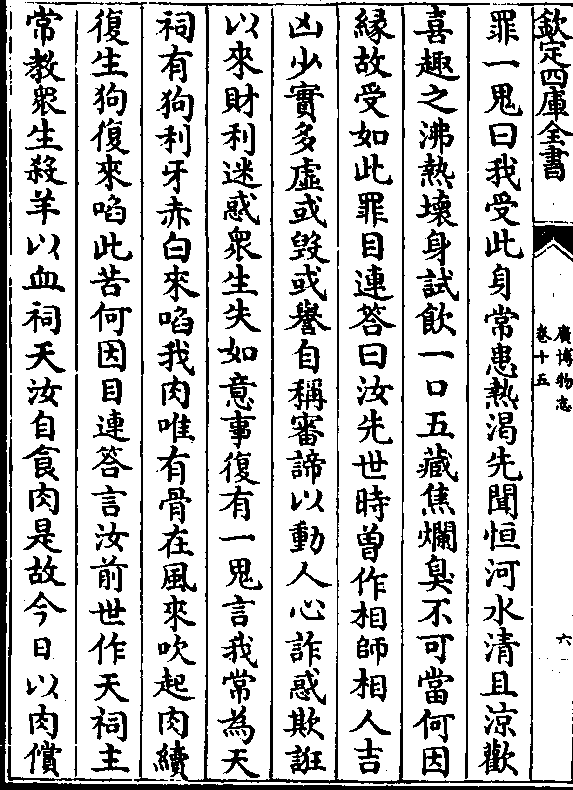 欽定四庫全書
廣博物志
卷十五
六
罪一鬼曰我受此身常患熱渴先聞恒河水清且涼歡
喜趣之沸熱壞身試飲一口五藏焦爛臭不可當何因
縁故受如此罪目連答曰汝先世時曽作相師相人吉
凶少實多虛或毀或譽自稱審諦以動人心詐惑欺誑
以來財利迷惑衆生失如意事復有一鬼言我常為天
祠有狗利牙赤白來㗖我肉唯有骨在風來吹起肉續
復生狗復來㗖此苦何因目連答言汝前世作天祠主
常教衆生殺羊以血祠天汝自食肉是故今日以肉償